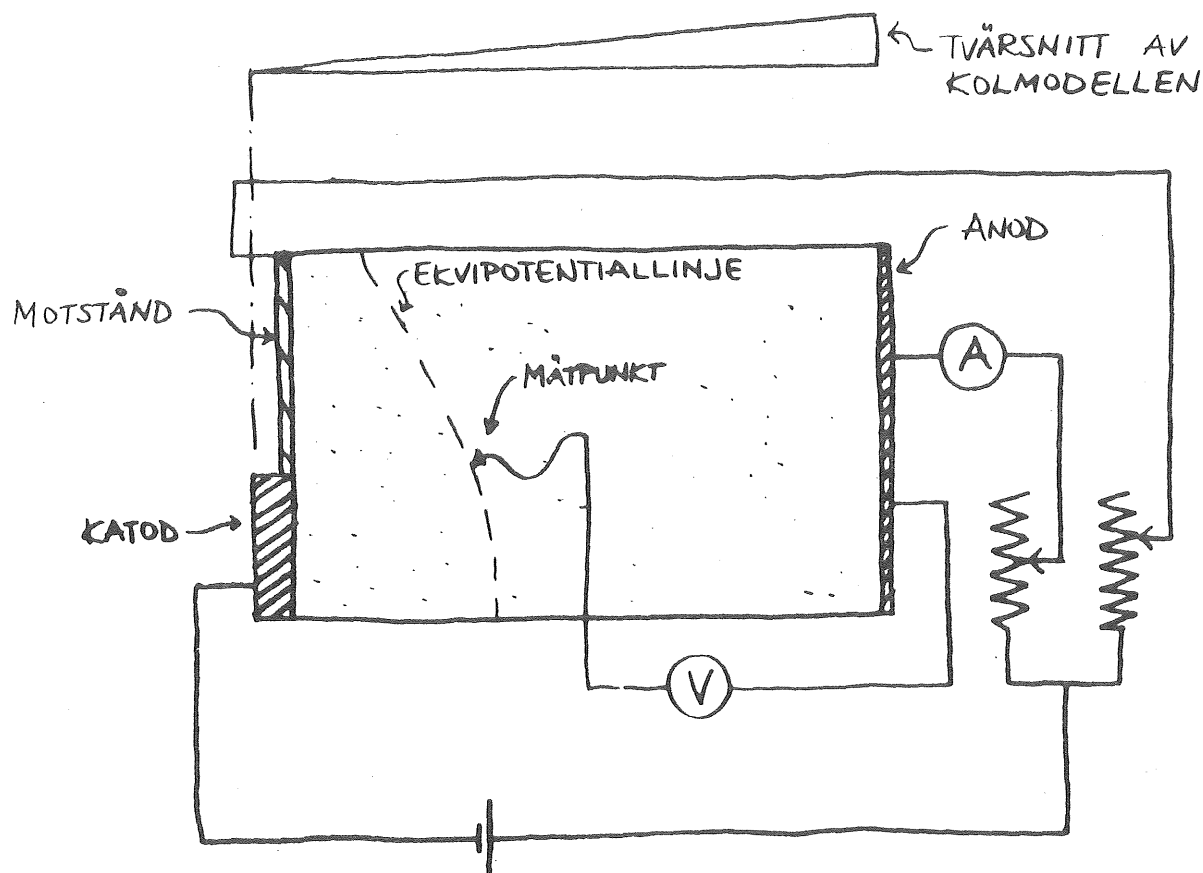 TVÄRSNITT AV
KOLMODELLEN
ANOD
EKVIPOTENTIALLINJE
MOTSTÅND
A
MÄTPUNKT
KATOD
V